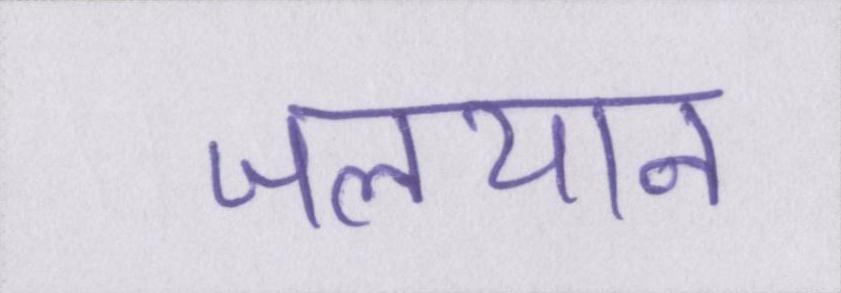 जलयान